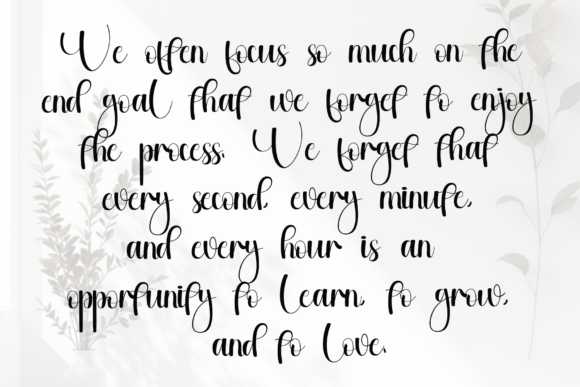 We often focus so much on the
end goal that we forget to enjoy
the process. We forget that
every second, every minute,
and every hour is an
opportunity to learn, to grow,
and to love.